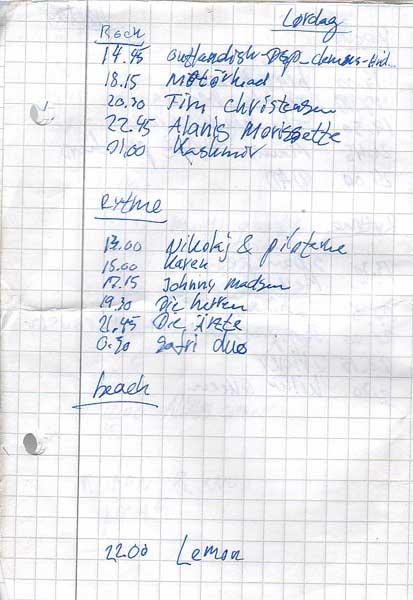 Lørdag
Rock
14.45 Outlandish-DSP-clemens-
18.15 Motörhead
20.30 Tim Christensen
22.45 Alanis Morissette
01.00 Kashmir
Rytme
13.00 Nikolaj & piloterne
15.00 Karen
17.15 Johnny madsen
19.30 Die herren
21.45 Die ärzte
0.30 Safri duo
beach
22.00 Lemon